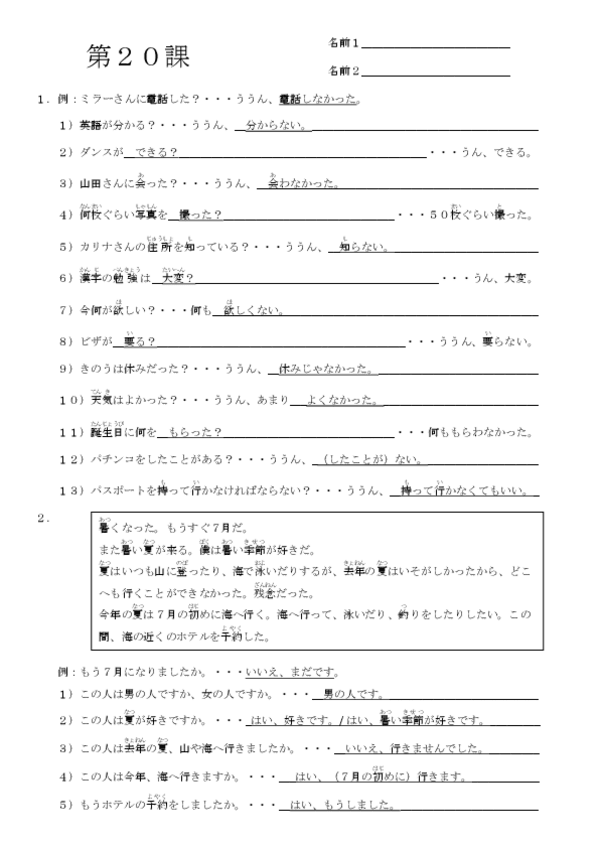 第２０課
名前１
名前２
１．例：ミラーさんに電話した？・・・ううん、電話しなかった。
１）英語が分かる？・・・ううん、 分からない。
２）ダンスが できる？ ・・・うん、できる。
３）山田さんに会った？・・・ううん、 会わなかった。
４）何枚ぐらい写真を 撮った？ ・・・５０枚ぐらい撮った。
５）カリナさんの住所を知っている？・・・ううん、 知らない。
６）漢字の勉強は 大変？ ・・・うん、大変。
７）今何が欲しい？・・・何も 欲しくない。
８）ビザが 要る？ ・・・ううん、要らない。
９）きのうは休みだった？・・・ううん、 休みじゃなかった。
１０）天気はよかった？・・・ううん、あまり よくなかった。
１１）誕生日に何を もらった？ ・・・何ももらわなかった。
１２）パチンコをしたことがある？・・・ううん、 （したことが）ない。
１３）パスポートを持って行かなければならない？・・・ううん、 持って行かなくてもいい。
２．
暑くなった。もうすぐ７月だ。
また暑い夏が来る。僕は暑い季節が好きだ。
夏はいつも山に登ったり、海で泳いだりするが、去年の夏はいそがしかったから、どこ
へも行くことができなかった。残念だった。
今年の夏は７月の初めに海へ行く。海へ行って、泳いだり、釣りをしたりしたい。この
間、海の近くのホテルを予約した。
例：もう７月になりましたか。・・・いいえ、まだです。
１）この人は男の人ですか、女の人ですか。・・・ 男の人です。
２）この人は夏が好きですか。・・・ はい、好きです。/はい、暑い季節が好きです。
３）この人は去年の夏、山や海へ行きましたか。・・・ いいえ、行きませんでした。
４）この人は今年、海へ行きますか。・・・ はい、（７月の初めに）行きます。
５）もうホテルの予約をしましたか。・・・ はい、もうしました。